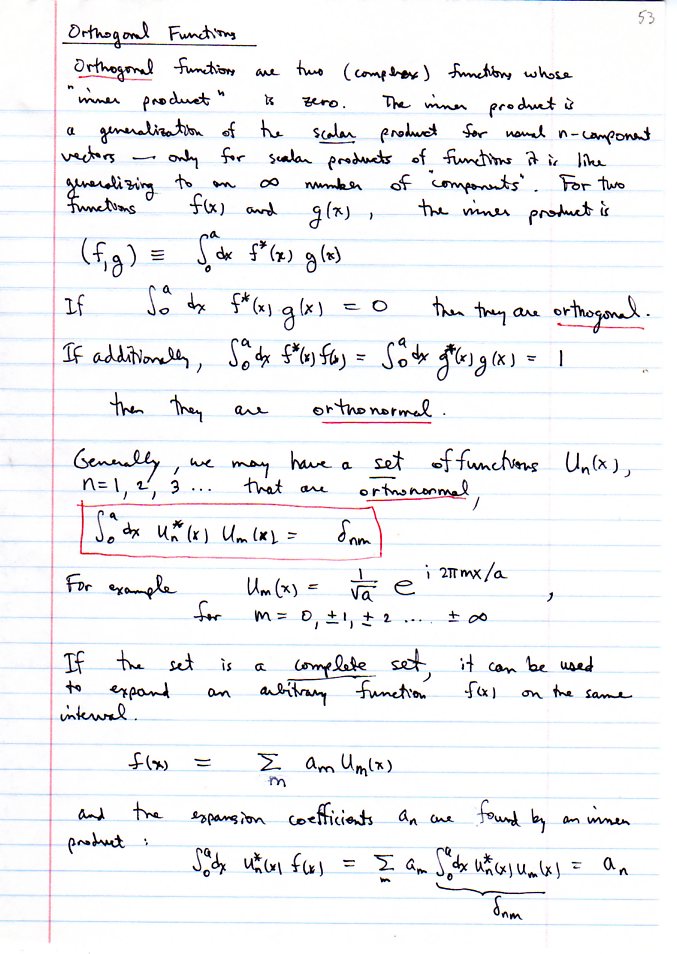 53
Orthogonal Functions
Orthogonal functions are two (complex) functions whose
"inner product" is zero. The inner product is
a generalization of the scalar product for usual n-component
vectors — only for scalar products of functions it is like
generalizing to an ∞ number of "components". For two
functions f(x) and g(x), the inner product is
(f,g) ≡ ∫₀ᵃ dx f*(x) g(x)
If ∫₀ᵃ dx f*(x) g(x) = 0 then they are orthogonal.
If additionally, ∫₀ᵃ dx f*(x) f(x) = ∫₀ᵃ dx g*(x) g(x) = 1
then they are orthonormal.
Generally, we may have a set of functions Uₙ(x),
n=1, 2, 3 ... that are orthonormal,
∫₀ᵃ dx uₙ*(x) uₘ(x) = δₙₘ
For example Uₘ(x) = 1/√a e^{i 2πmx/a},
for m = 0, ±1, ±2 .... ±∞
If the set is a complete set, it can be used
to expand an arbitrary function f(x) on the same
interval.
f(x) = Σₘ aₘ Uₘ(x)
and the expansion coefficients aₙ are found by an inner
product:
∫₀ᵃ dx uₙ*(x) f(x) = Σₘ aₘ ∫₀ᵃ dx uₙ*(x) uₘ(x) = aₙ
δₙₘ